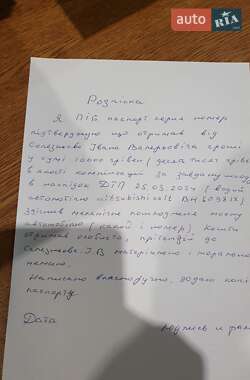 AUTO RIA .com
Розписка
Я ПІБ паспорт серія номер
підтверджую що отримав від
Селезньова Івана Валерьовіча гроші
у сумі 10000 грівен (десять тисяч грівен
в якості компенсації за завдану шкоду
в наслідок ДТП 25.03.
автомобілю mitsubishi colt ВН
механічне пошкодження моєму
автомобілю (какой і номер). Кошти
отримав особисто, прітензій до
Селезньова І.В матеріального і морального
немаю.
Написано власноручно, додаю копію
паспорту
Дата